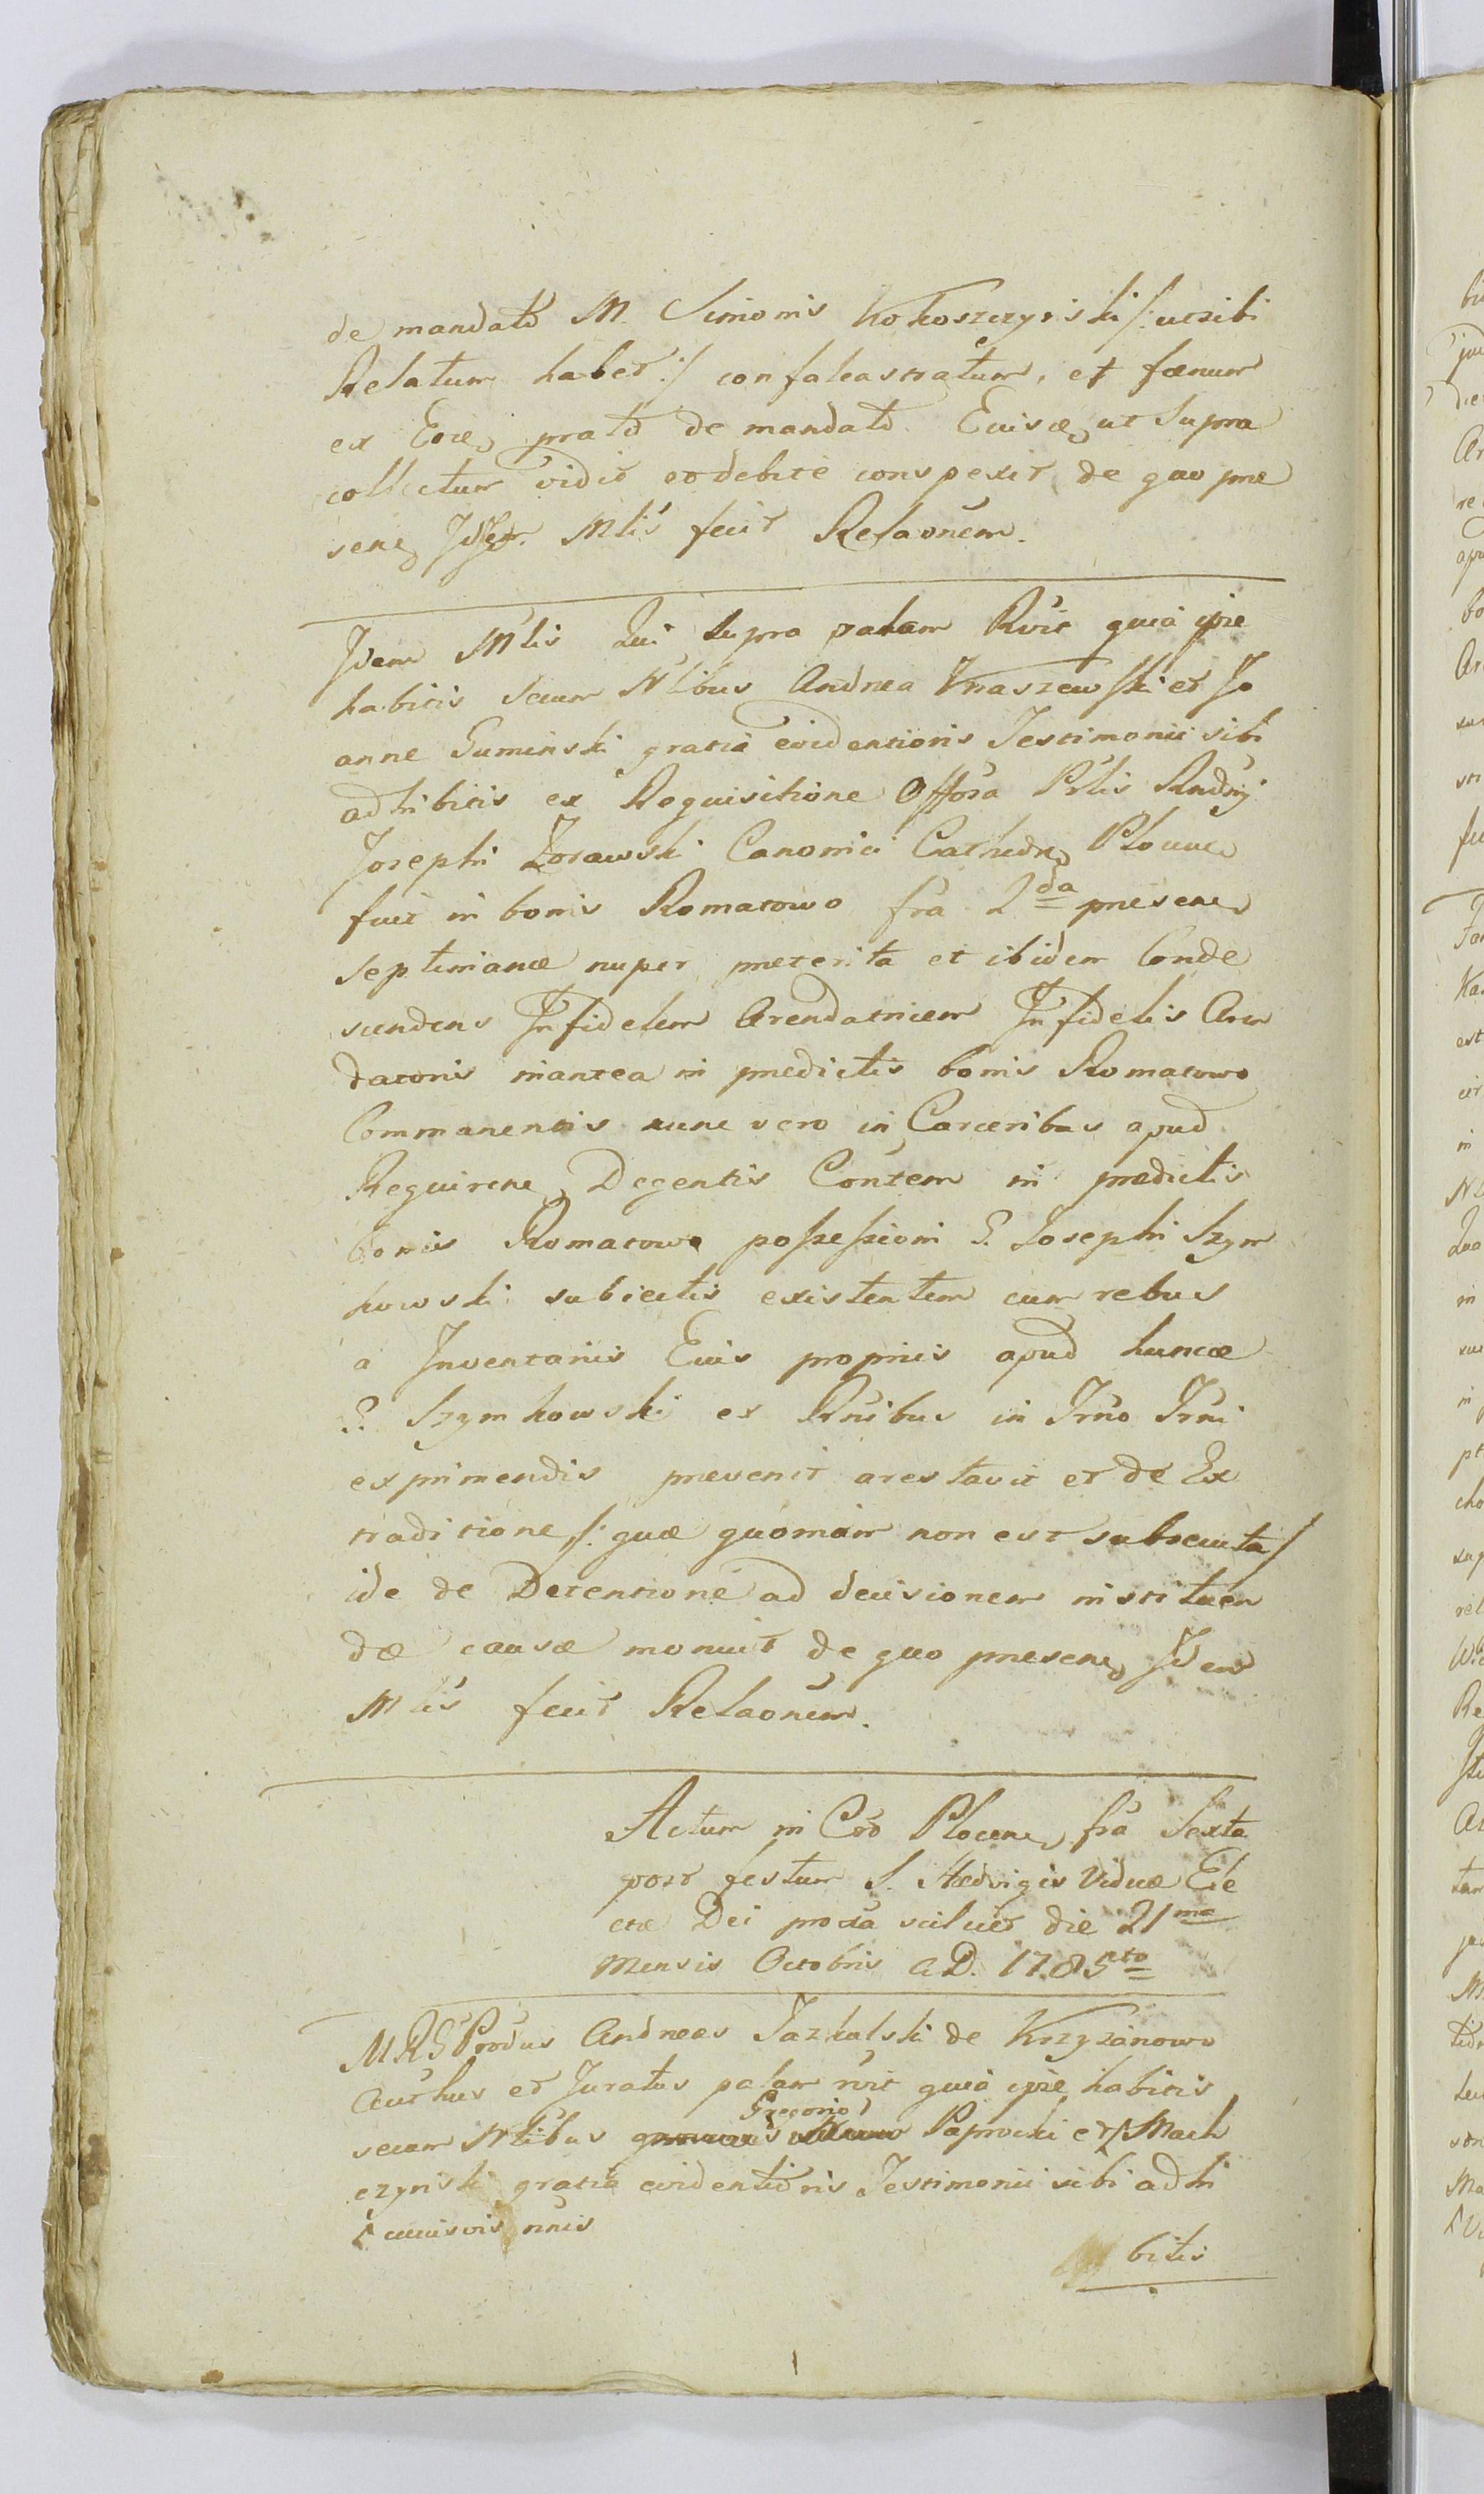 de mandato M. Simonis Kokoszczyński /: ut sibi
Relatum habet :/ confalcastratum, et fænum
ex Eoe prato de mandato Euisce ut Supra
collectum vidit et debite conspexit, de quo præ
sens Idem Mlis fecit Relaõnem.
Idem Mlis Qui Supra palam Rvit quia ipse
habitis Secum Nlibus Andrea Knaszewski et Jo
anne Guminski gratia evidentioris Testimonii sibi
adhibitis ex Requisitione Offosa Prlis Rndmj
Josephi Zorawski Canonici Cathedr Plocens
fuit in bonis Romatowo fra 2da præsens
septimanæ nuper præterita et ibidem Conde
scendens Infidelem Arendatricem Infidelis Aren
datoris inantea in prædictis bonis Romatowo
Commanentis nunc vero in Carceribus apud
Requirens Degentis Contem in prædictis
bonis Romatowo possessioni G. Josephi Szym
kowski subiectis existentem cum rebus
a Inventariis Euis propriis apud huncce
G. Szymkowski ex Rnibus in Trno Trni
exprimendis prævenit arestavit et de Ex
traditione /: quæ quoniam non est subsecuta /
ide de Detentione ad decisionem instituen
dæ causæ monuit de quo præsens Idem
Mlis fecit Relaõnem.
Actum in Cõ Plocens fra Sexta
post festum S. Hedvigis Viduæ Ele
ctæ Dei proxa scilicet die 21ma
Mensis Octobris A.D. 1785nto
MRG Produs Andreas Jazkalski de Krzyzanowo
Authus et Juratus palam rvit quia ipse habitis
secum Nlibus Gregorio Paprocki et / Mach
czynski gratia evidentioris Testimonii sibi adhi
/ cuiusvis nnis
bitis